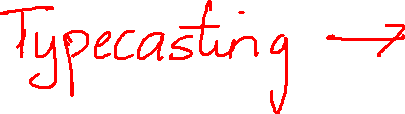 Typecasting →